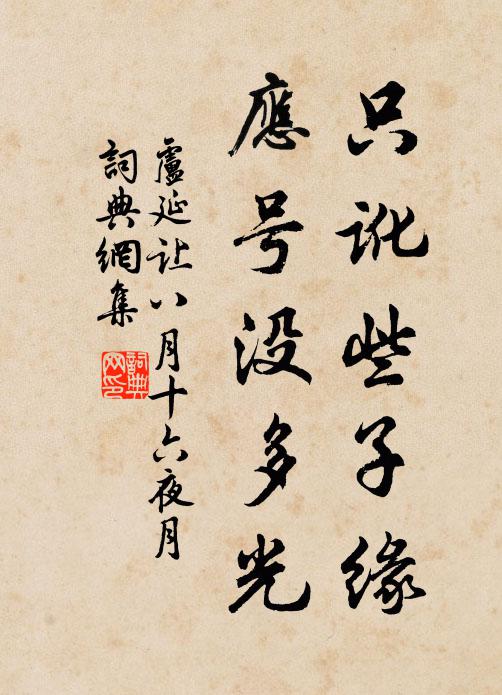 只讹些子缘
應号没多光
盧延让八月十六夜月
詞典網集
詞典网印